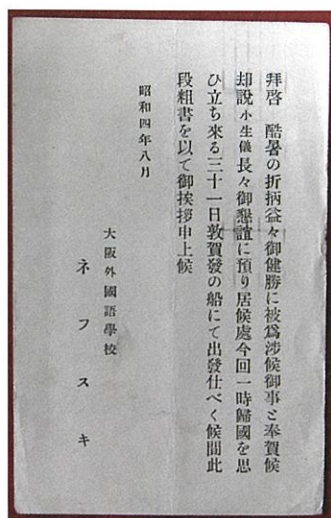 拜啓　酷暑の折柄益々御健勝に被爲涉候御事と奉賀候
却說小生儀長々御懇誼に預り居候處今回一時歸國を思
ひ立ち來る三十一日敦賀發の船にて出發仕べく候間此
段粗書を以て御挨拶申上候
昭和四年八月
大阪外國語學校
ネフスキ